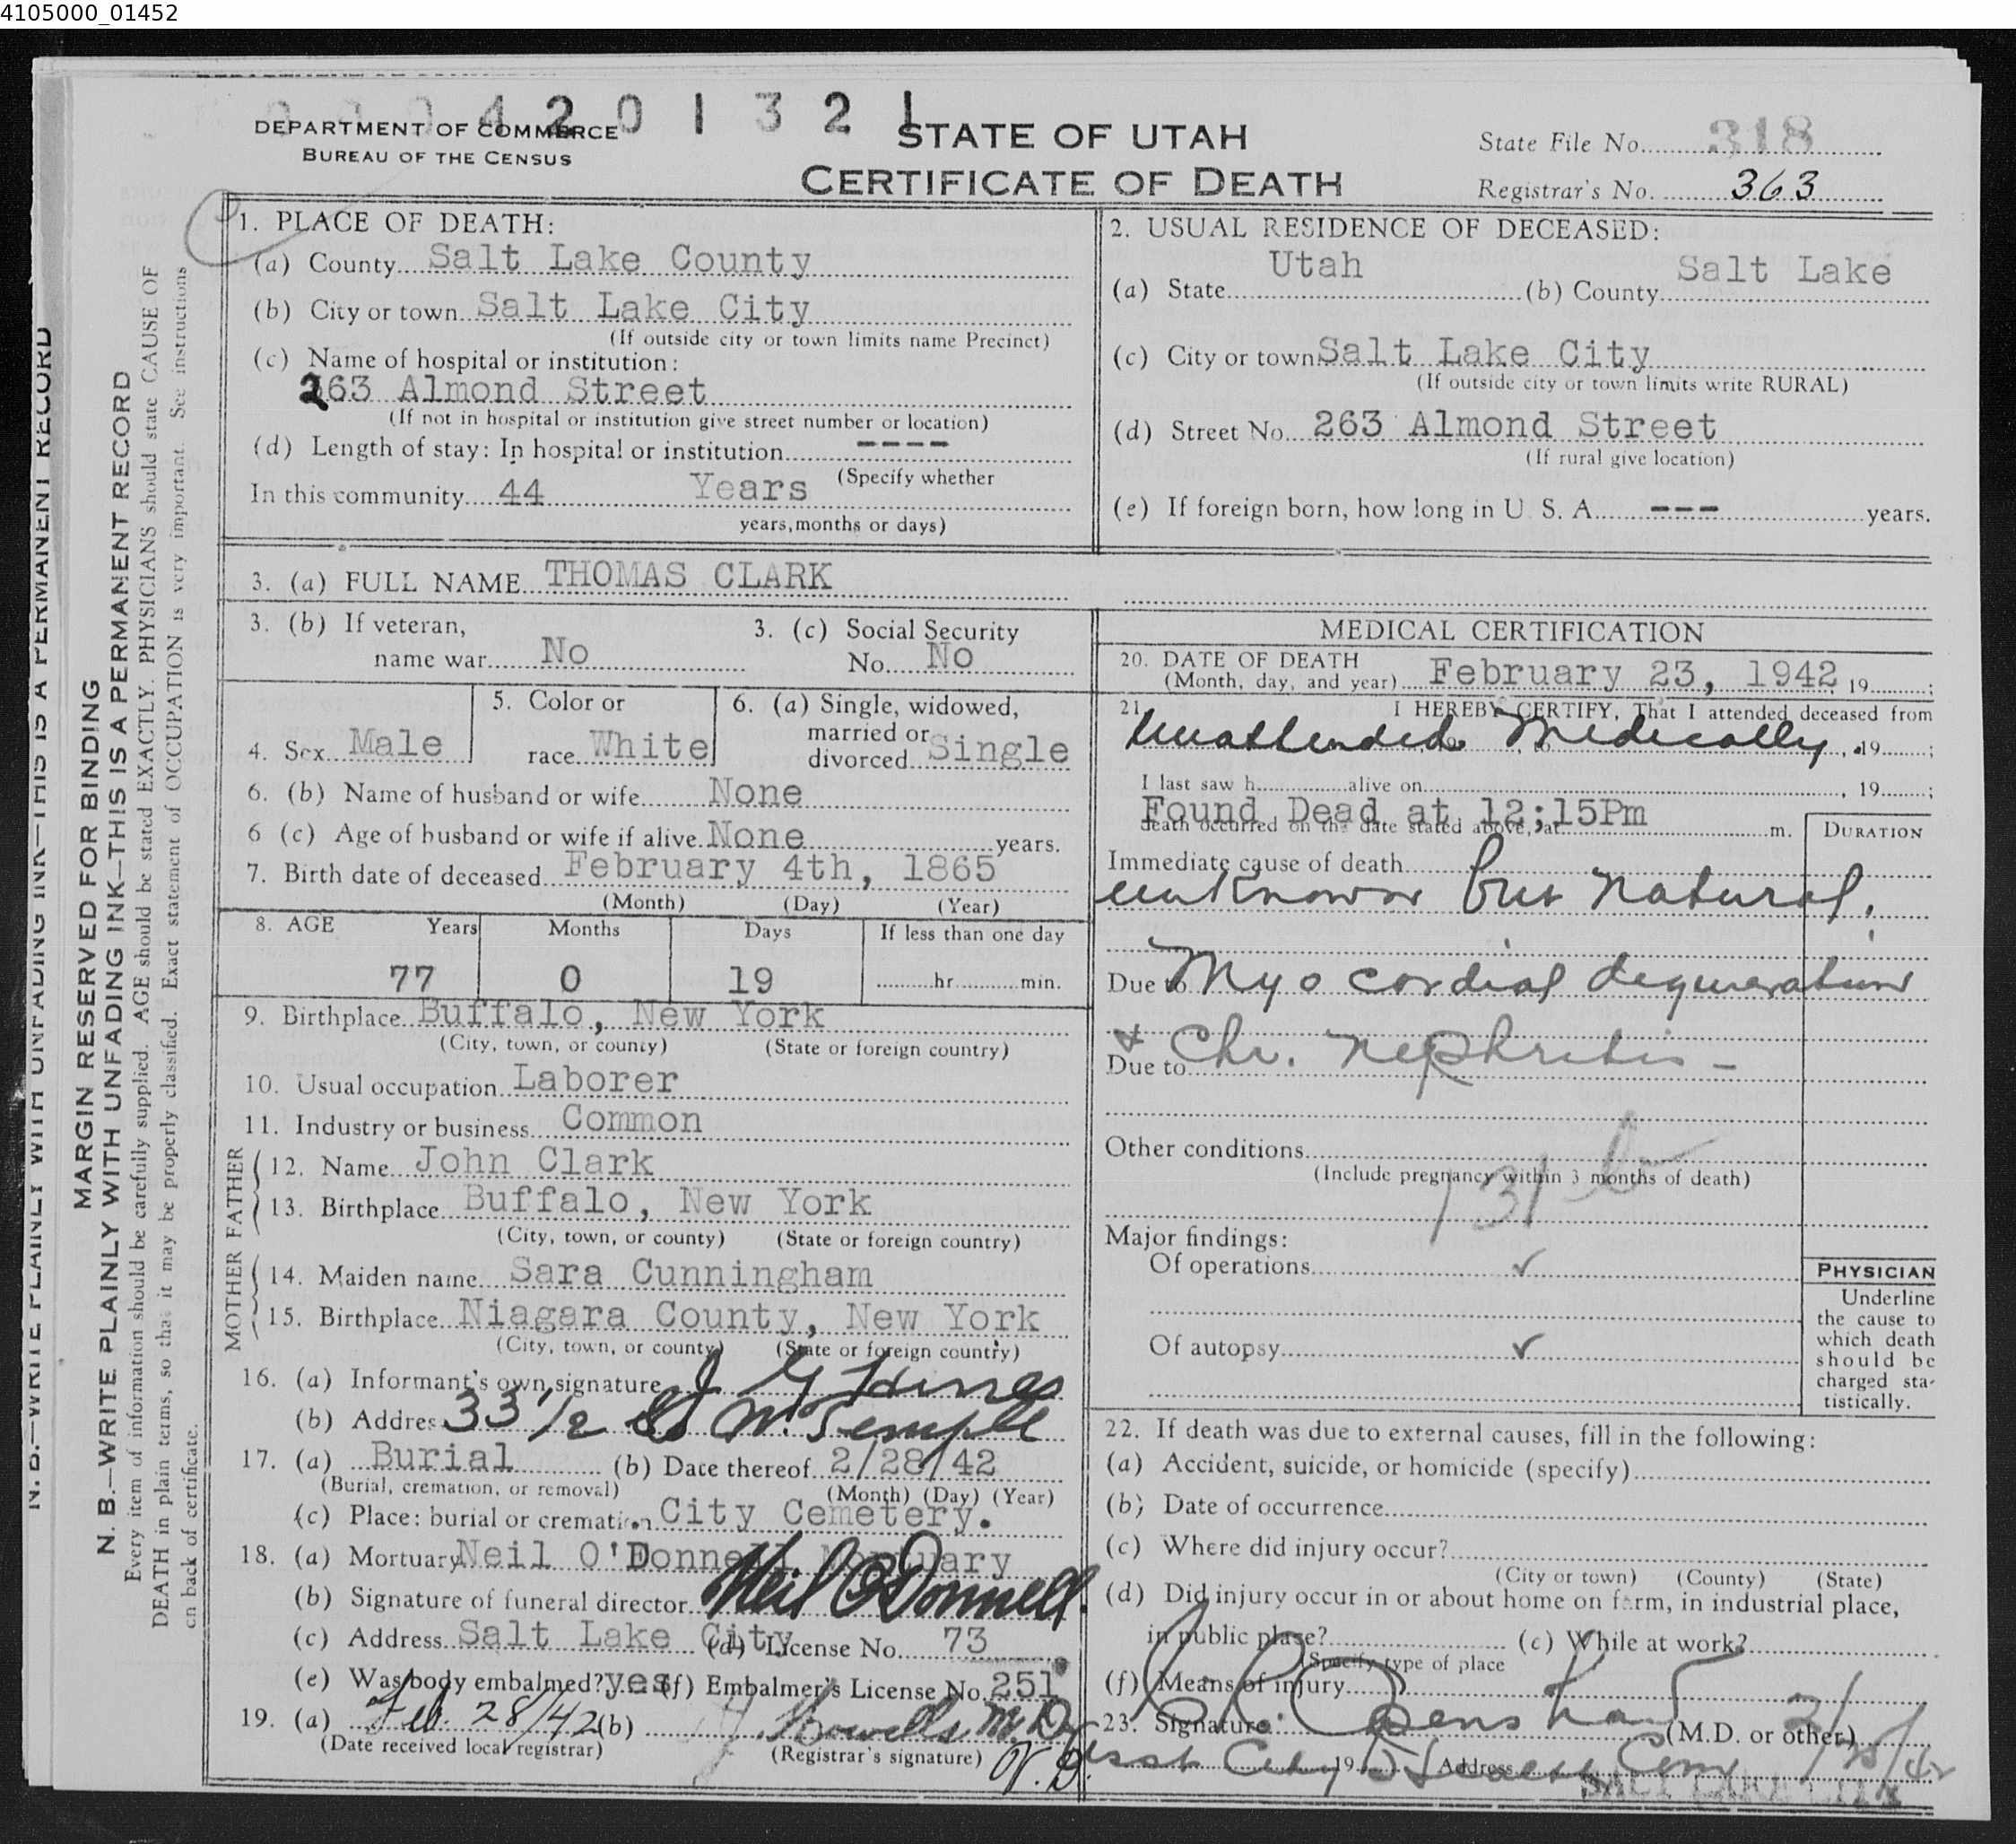 4105000_01452
4 2 0 1 3 2 1
DEPARTMENT OF COMMERCE
BUREAU OF THE CENSUS
STATE OF UTAH
CERTIFICATE OF DEATH
State File No. 318
Registrar's No. 363
N. B.—WRITE PLAINLY WITH UNFADING INK—THIS IS A PERMANENT RECORD
MARGIN RESERVED FOR BINDING
N. B.—WRITE PLAINLY WITH UNFADING INK—THIS IS A PERMANENT RECORD
Every item of information should be carefully supplied. AGE should be stated EXACTLY. PHYSICIANS should state CAUSE OF
DEATH in plain terms, so that it may be properly classified. Exact statement of OCCUPATION is very important. See instructions
on back of certificate.
1. PLACE OF DEATH:
(a) County Salt Lake County
(b) City or town Salt Lake City
(If outside city or town limits name Precinct)
(c) Name of hospital or institution:
263 Almond Street
(If not in hospital or institution give street number or location)
(d) Length of stay: In hospital or institution ----
(Specify whether
In this community 44 Years
years, months or days)
2. USUAL RESIDENCE OF DECEASED:
(a) State Utah (b) County Salt Lake
(c) City or town Salt Lake City
(If outside city or town limits write RURAL)
(d) Street No. 263 Almond Street
(If rural give location)
(e) If foreign born, how long in U. S. A. --- years.
3. (a) FULL NAME THOMAS CLARK
3. (b) If veteran,
name war No
3. (c) Social Security
No. No
4. Sex Male
5. Color or
race White
6. (a) Single, widowed,
married or
divorced Single
6. (b) Name of husband or wife None
6 (c) Age of husband or wife if alive None years.
7. Birth date of deceased February 4th, 1865
(Month) (Day) (Year)
8. AGE Years Months Days If less than one day
77 0 19 hr. min.
9. Birthplace Buffalo, New York
(City, town, or county) (State or foreign country)
10. Usual occupation Laborer
11. Industry or business Common
FATHER
12. Name John Clark
13. Birthplace Buffalo, New York
(City, town, or county) (State or foreign country)
MOTHER
14. Maiden name Sara Cunningham
15. Birthplace Niagara County, New York
(City, town, or county) (State or foreign country)
16. (a) Informant's own signature J G Hines
(b) Address 33 1/2 W. Temple
17. (a) Burial (b) Date thereof 2/28/42
(Burial, cremation, or removal) (Month) (Day) (Year)
(c) Place: burial or cremation City Cemetery.
18. (a) Mortuary Neil O'Donnell Mortuary
(b) Signature of funeral director Neil O'Donnell.
(c) Address Salt Lake City (d) License No. 73
(e) Was body embalmed? yes (f) Embalmer's License No. 251
19. (a) Feb. 28/42 (b) Howells M.D.
(Date received local registrar) (Registrar's signature)
MEDICAL CERTIFICATION
20. DATE OF DEATH
(Month, day, and year) February 23, 1942 19 ;
21. I HEREBY CERTIFY, That I attended deceased from
Unattended Medically , 19 ;
I last saw h alive on , 19 ;
Found Dead at 12;15Pm
death occurred on the date stated above, at m.
DURATION
Immediate cause of death
unknown but natural.
Due to Myocordial degeneration
& Chr. nephritis -
Due to
Other conditions
(Include pregnancy within 3 months of death)
131 b
Major findings:
Of operations ✓
Of autopsy ✓
PHYSICIAN
Underline
the cause to
which death
should be
charged sta-
tistically.
22. If death was due to external causes, fill in the following:
(a) Accident, suicide, or homicide (specify)
(b) Date of occurrence
(c) Where did injury occur?
(City or town) (County) (State)
(d) Did injury occur in or about home on farm, in industrial place,
in public place? (c) While at work?
(Specify type of place
(f) Means of injury
23. Signature (M.D. or other)
19 Address
SALT LAKE CITY